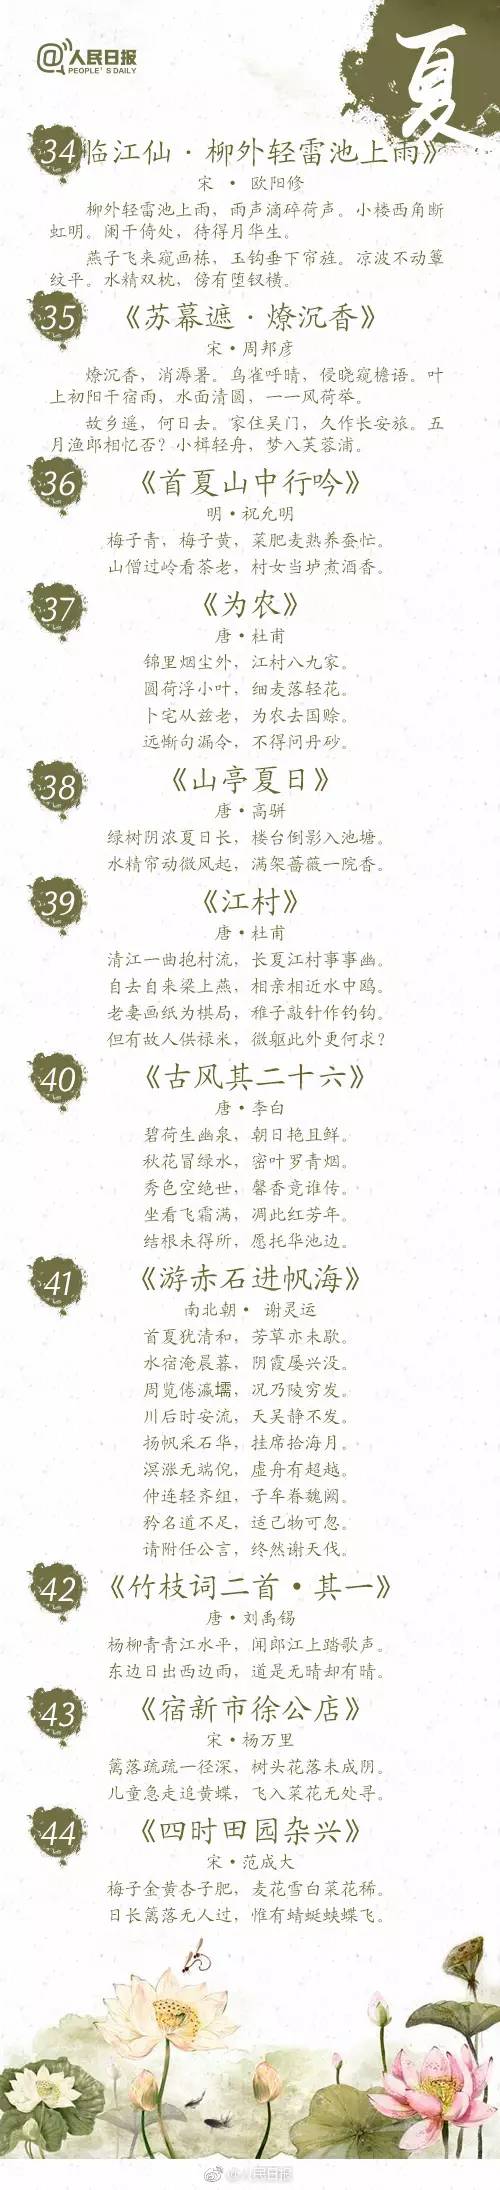 人民日报
PEOPLE'S DAILY
夏
34
临江仙·柳外轻雷池上雨》
宋 · 欧阳修
柳外轻雷池上雨，雨声滴碎荷声。小楼西角断
虹明。阑干倚处，待得月华生。
燕子飞来窥画栋，玉钩垂下帘旌。凉波不动簟
纹平。水精双枕，傍有堕钗横。
35
《苏幕遮·燎沉香》
宋·周邦彦
燎沉香，消溽暑。鸟雀呼晴，侵晓窥檐语。叶
上初阳干宿雨，水面清圆，一一风荷举。
故乡遥，何日去。家住吴门，久作长安旅。五
月渔郎相忆否？小楫轻舟，梦入芙蓉浦。
36
《首夏山中行吟》
明·祝允明
梅子青，梅子黄，菜肥麦熟养蚕忙。
山僧过岭看茶老，村女当垆煮酒香。
37
《为农》
唐·杜甫
锦里烟尘外，江村八九家。
圆荷浮小叶，细麦落轻花。
卜宅从兹老，为农去国赊。
远惭句漏令，不得问丹砂。
38
《山亭夏日》
唐·高骈
绿树阴浓夏日长，楼台倒影入池塘。
水精帘动微风起，满架蔷薇一院香。
39
《江村》
唐·杜甫
清江一曲抱村流，长夏江村事事幽。
自去自来梁上燕，相亲相近水中鸥。
老妻画纸为棋局，稚子敲针作钓钩。
但有故人供禄米，微躯此外更何求？
40
《古风其二十六》
唐·李白
碧荷生幽泉，朝日艳且鲜。
秋花冒绿水，密叶罗青烟。
秀色空绝世，馨香竟谁传。
坐看飞霜满，凋此红芳年。
结根未得所，愿托华池边。
41
《游赤石进帆海》
南北朝· 谢灵运
首夏犹清和，芳草亦未歇。
水宿淹晨暮，阴霞屡兴没。
周览倦瀛壖，况乃陵穷发。
川后时安流，天吴静不发。
扬帆采石华，挂席拾海月。
溟涨无端倪，虚舟有超越。
仲连轻齐组，子牟眷魏阙。
矜名道不足，适己物可忽。
请附任公言，终然谢天伐。
42
《竹枝词二首·其一》
唐·刘禹锡
杨柳青青江水平，闻郎江上踏歌声。
东边日出西边雨，道是无晴却有晴。
43
《宿新市徐公店》
宋·杨万里
篱落疏疏一径深，树头花落未成阴。
儿童急走追黄蝶，飞入菜花无处寻。
44
《四时田园杂兴》
宋·范成大
梅子金黄杏子肥，麦花雪白菜花稀。
日长篱落无人过，惟有蜻蜓蛱蝶飞。
@人民日报